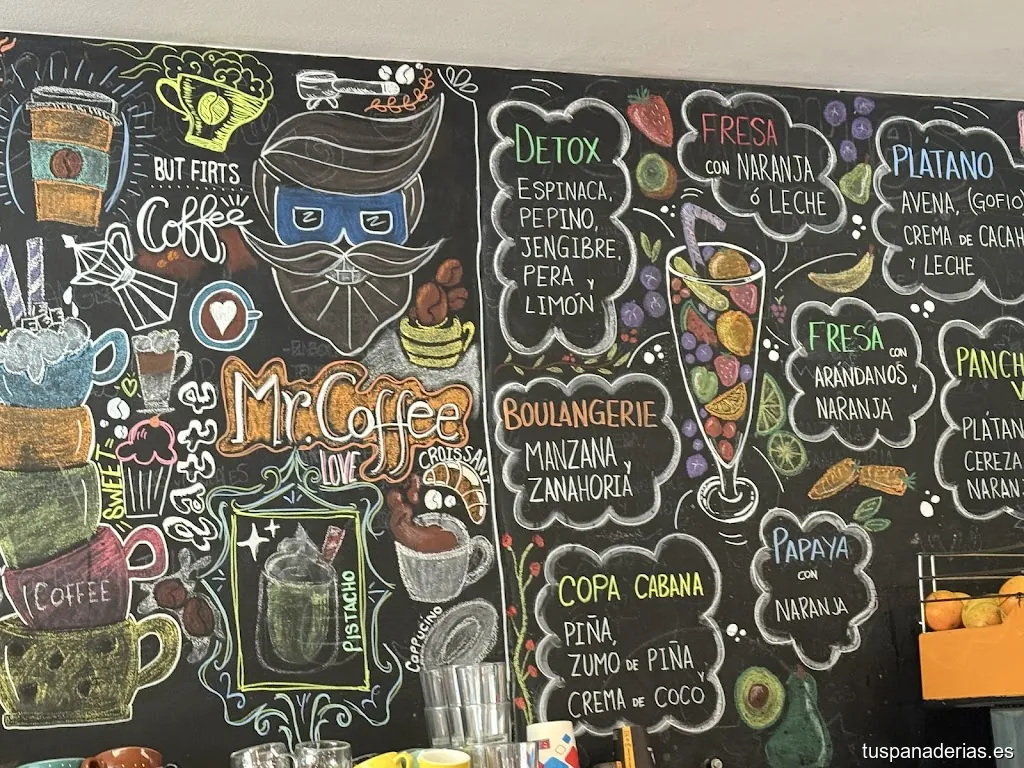 BUT FIRTS
Coffee
Mr. Coffee
LOVE
CROISSANT
Latte
SWEET
COFFEE
PISTACHO
Cappucino
DETOX
ESPINACA,
PEPINO,
JENGIBRE,
PERA Y
LIMÓN
FRESA
CON NARANJA
Ó LECHE
PLÁTANO
AVENA, (GOFIO)
CREMA DE CACAH
Y LECHE
FRESA CON
ARÁNDANOS Y
NARANJA
PANCH
PLÁTAN
CEREZA
NARAN
BOULANGERIE
MANZANA Y
ZANAHORIA
COPA CABANA
PIÑA,
ZUMO DE PIÑA Y
CREMA DE COCO
PAPAYA
CON
NARANJA
tuspanaderias.es